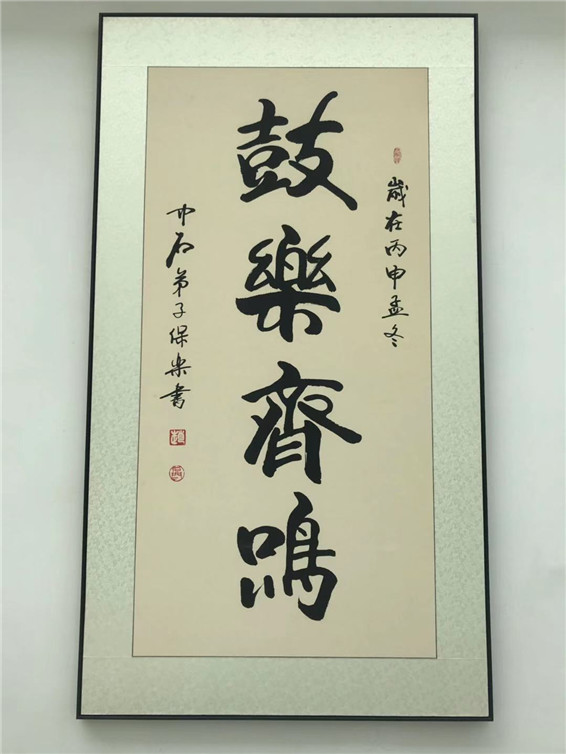 歲在丙申孟冬
鼓樂齊鳴
中石弟子保樂書